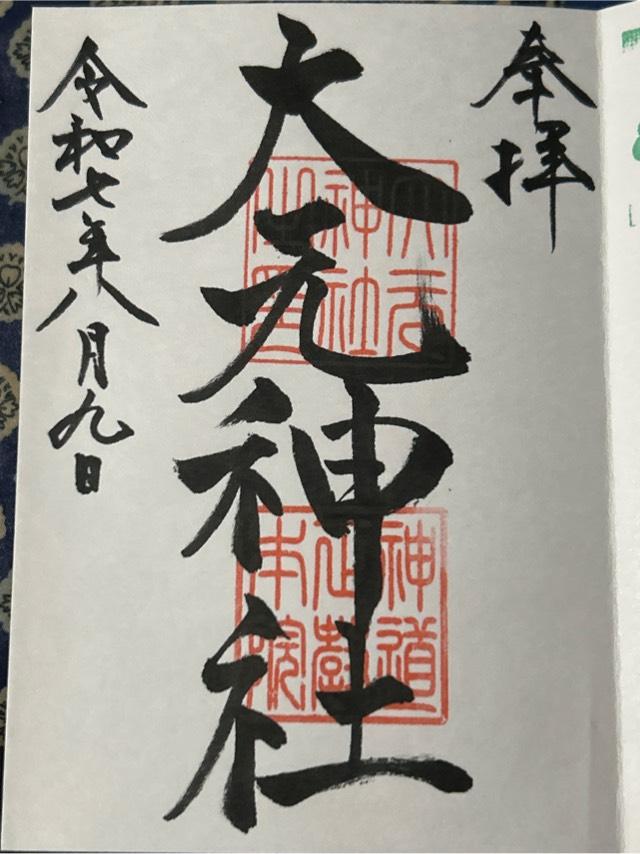 奉拝
大元神社
令和七年八月九日
大元神社之璽
神道正教本院